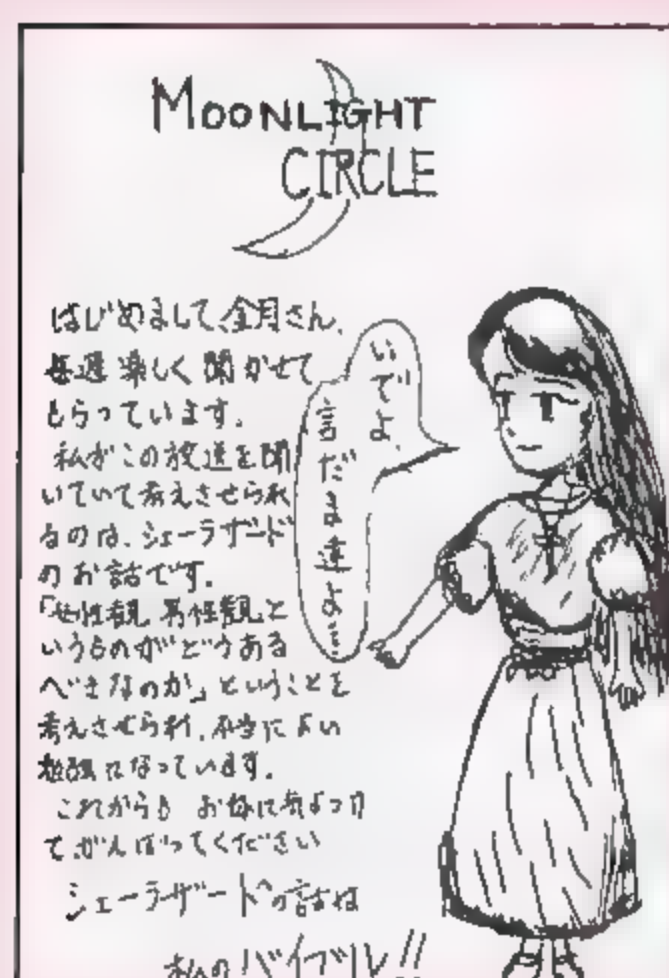 MOONLIGHT
CIRCLE
はじめまして、金月さん、
毎週楽しく聞かせて
もらっています。
私がこの放送を聞
いていて考えさせられ
るのは、シェーラザード
のお話です。
「女性観、男性観と
いうものがどうある
べきなのか」ということを
考えさせられ、本当によい
勉強になっています。
これからも お体に気をつけ
て、がんばってください
シェーラザードの話は
私のバイブル!!
いでよ、
言だま達よ…